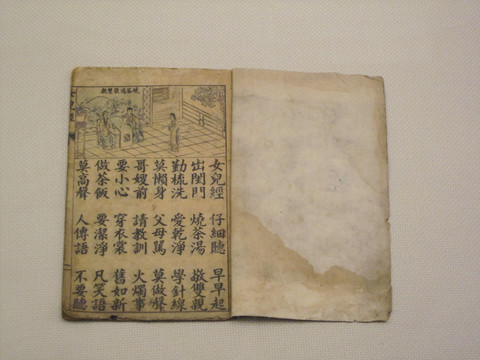 女兒經 仔細聽 早早起
出閨門 燒茶湯 敬雙親
勤梳洗 愛乾淨 學針線
莫懶身 父母罵 莫做聲
哥嫂前 請教訓 火燭事
要小心 穿衣裳 舊如新
做茶飯 要潔淨 凡笑語
莫高聲 人傳語 不要聽